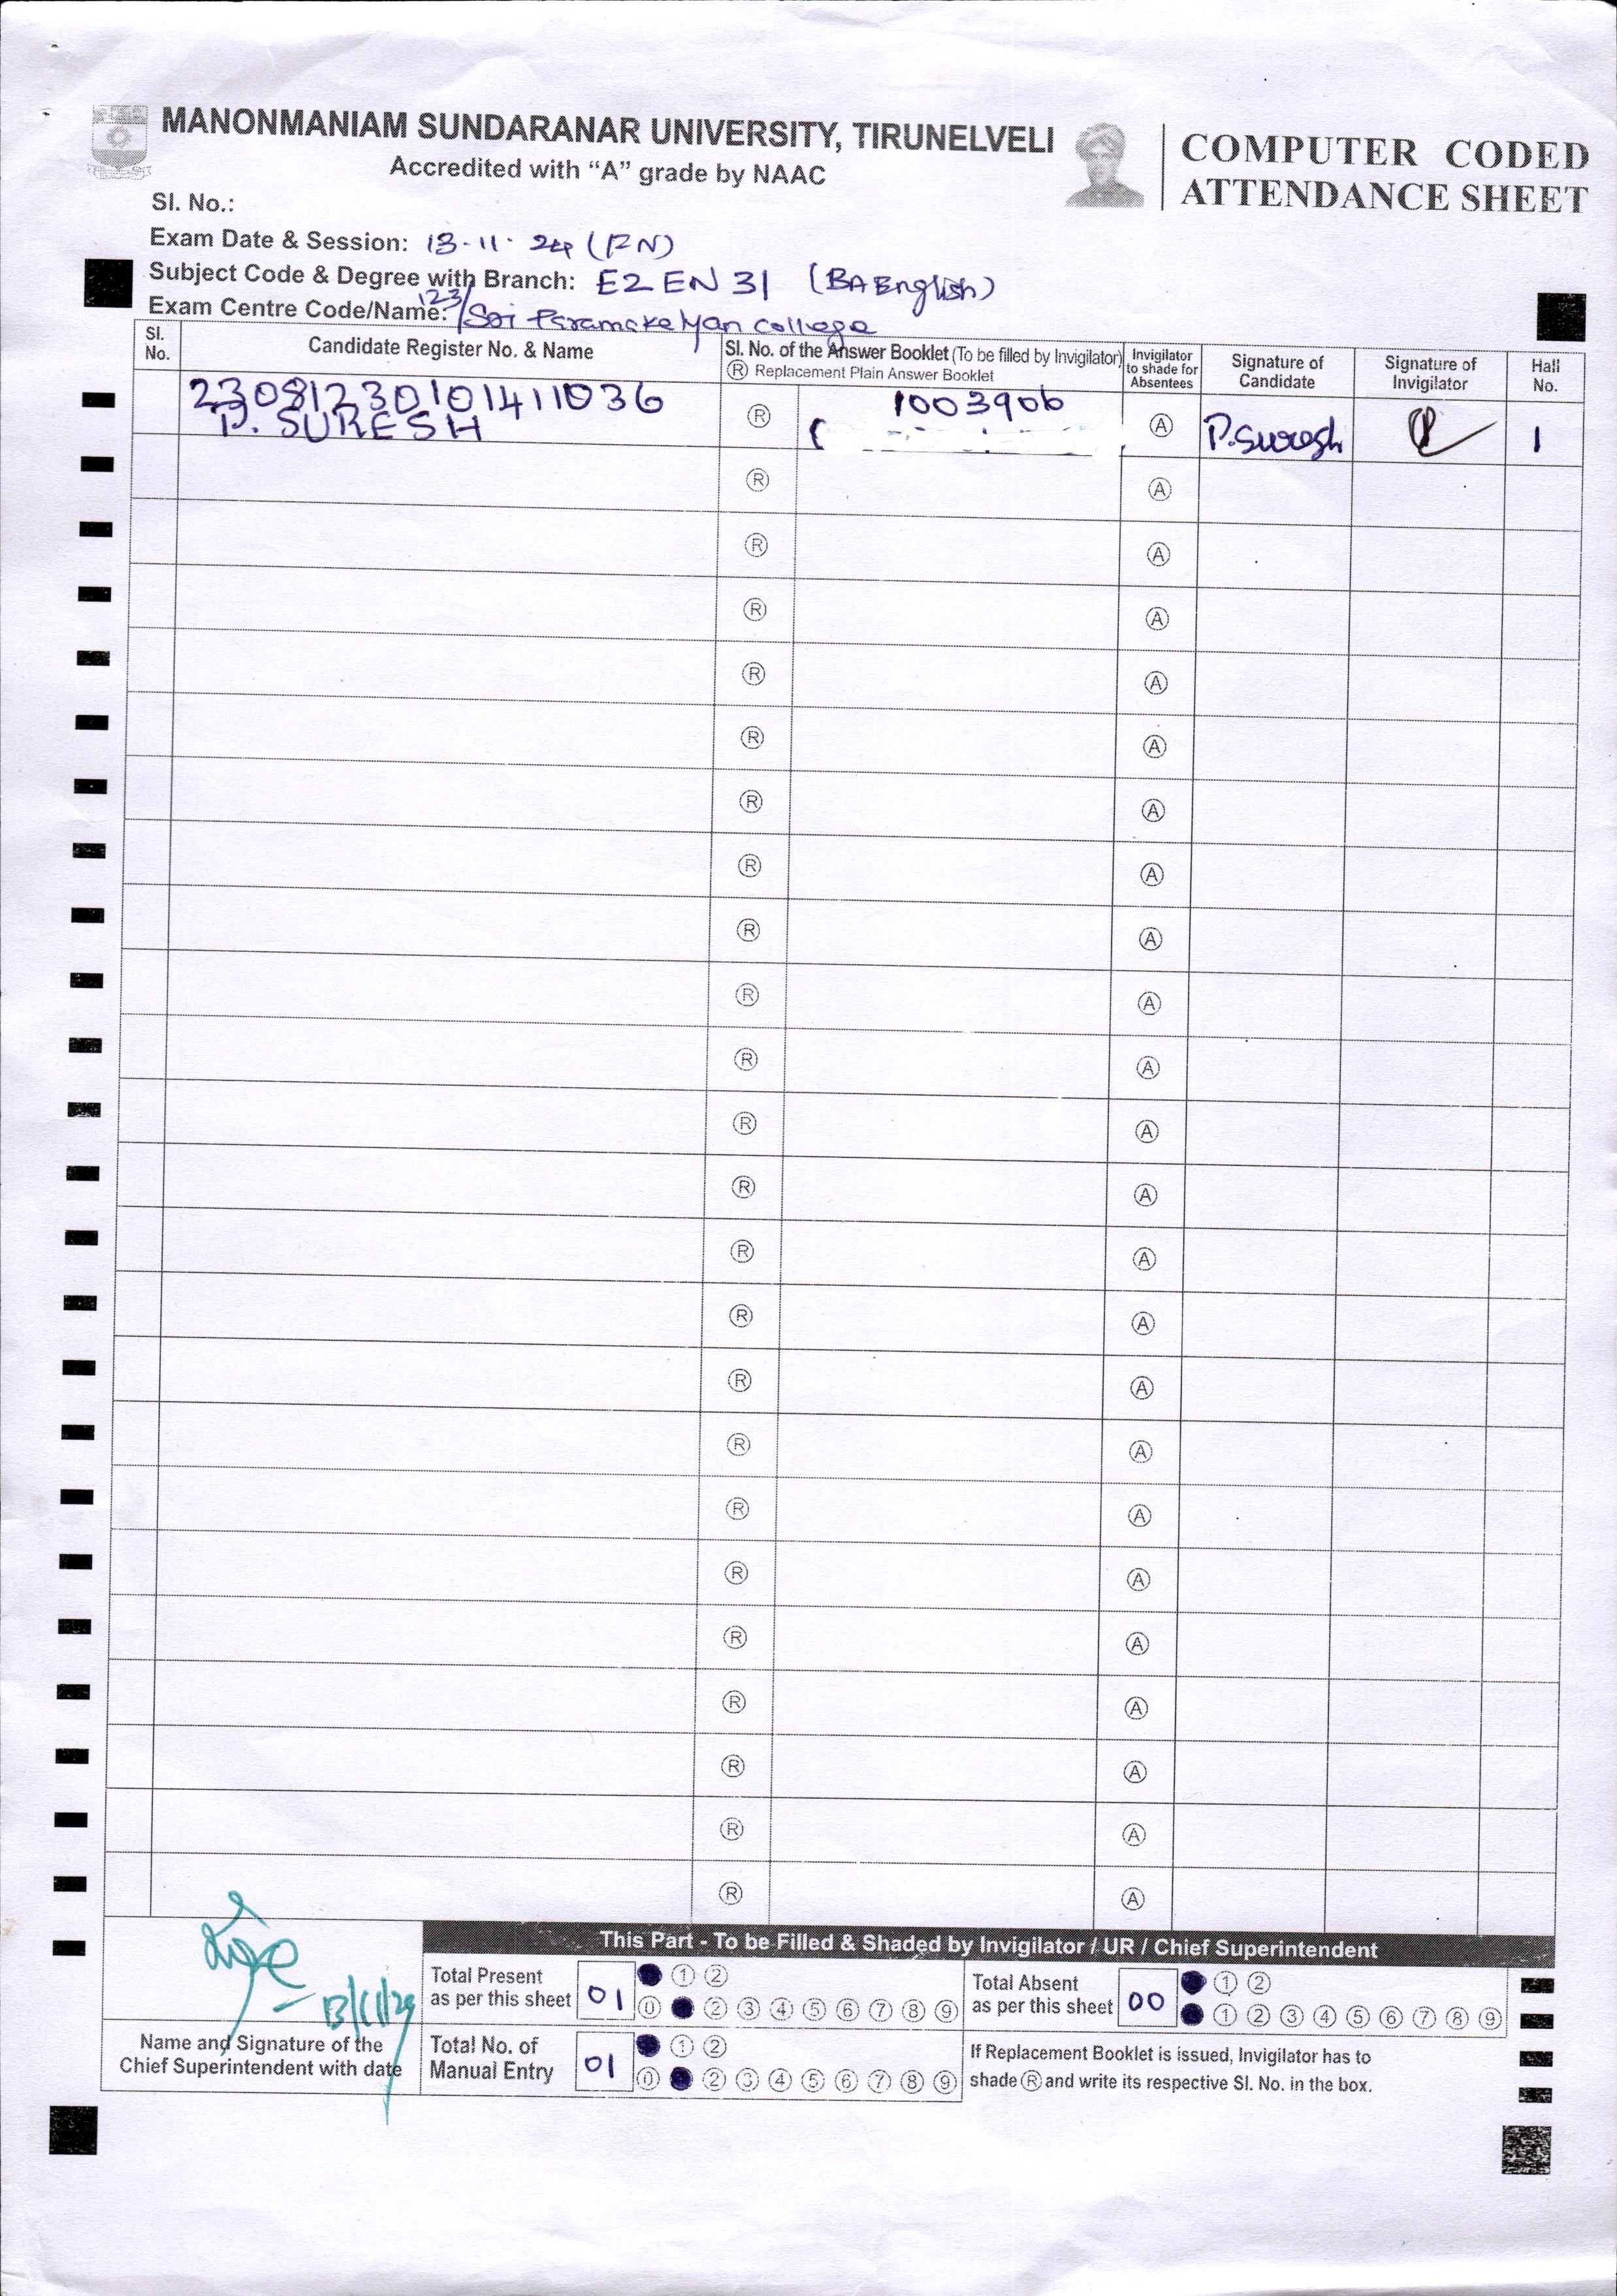 MANONMANIAM SUNDARANAR UNIVERSITY, TIRUNELVELI
Accredited with “A” grade by NAAC
COMPUTER CODED
ATTENDANCE SHEET
Sl. No.:
Exam Date & Session: 13-11-24 (FN)
Subject Code & Degree with Branch: E2 EN 31 (BA English)
Exam Centre Code/Name: 123/ Sri Paramakalyan college
Sl. No. Candidate Register No. & Name Sl. No. of the Answer Booklet (To be filled by Invigilator) Ⓡ Replacement Plain Answer Booklet Invigilator to shade for Absentees Signature of Candidate Signature of Invigilator Hall No.
23081230101411036 Ⓡ 1003906 Ⓐ P. Suresh 1
P. SURESH
Ⓡ Ⓐ
Ⓡ Ⓐ
Ⓡ Ⓐ
Ⓡ Ⓐ
Ⓡ Ⓐ
Ⓡ Ⓐ
Ⓡ Ⓐ
Ⓡ Ⓐ
Ⓡ Ⓐ
Ⓡ Ⓐ
Ⓡ Ⓐ
Ⓡ Ⓐ
Ⓡ Ⓐ
Ⓡ Ⓐ
Ⓡ Ⓐ
Ⓡ Ⓐ
Ⓡ Ⓐ
Ⓡ Ⓐ
Ⓡ Ⓐ
Ⓡ Ⓐ
Ⓡ Ⓐ
Ⓡ Ⓐ
Ⓡ Ⓐ
This Part - To be Filled & Shaded by Invigilator / UR / Chief Superintendent
Total Present as per this sheet 01 ① ②
⓪ ② ③ ④ ⑤ ⑥ ⑦ ⑧ ⑨
Total Absent as per this sheet 00 ① ②
① ② ③ ④ ⑤ ⑥ ⑦ ⑧ ⑨
13/11/24
Name and Signature of the
Chief Superintendent with date
Total No. of Manual Entry 01 ① ②
⓪ ② ③ ④ ⑤ ⑥ ⑦ ⑧ ⑨
If Replacement Booklet is issued, Invigilator has to
shade Ⓡ and write its respective Sl. No. in the box.